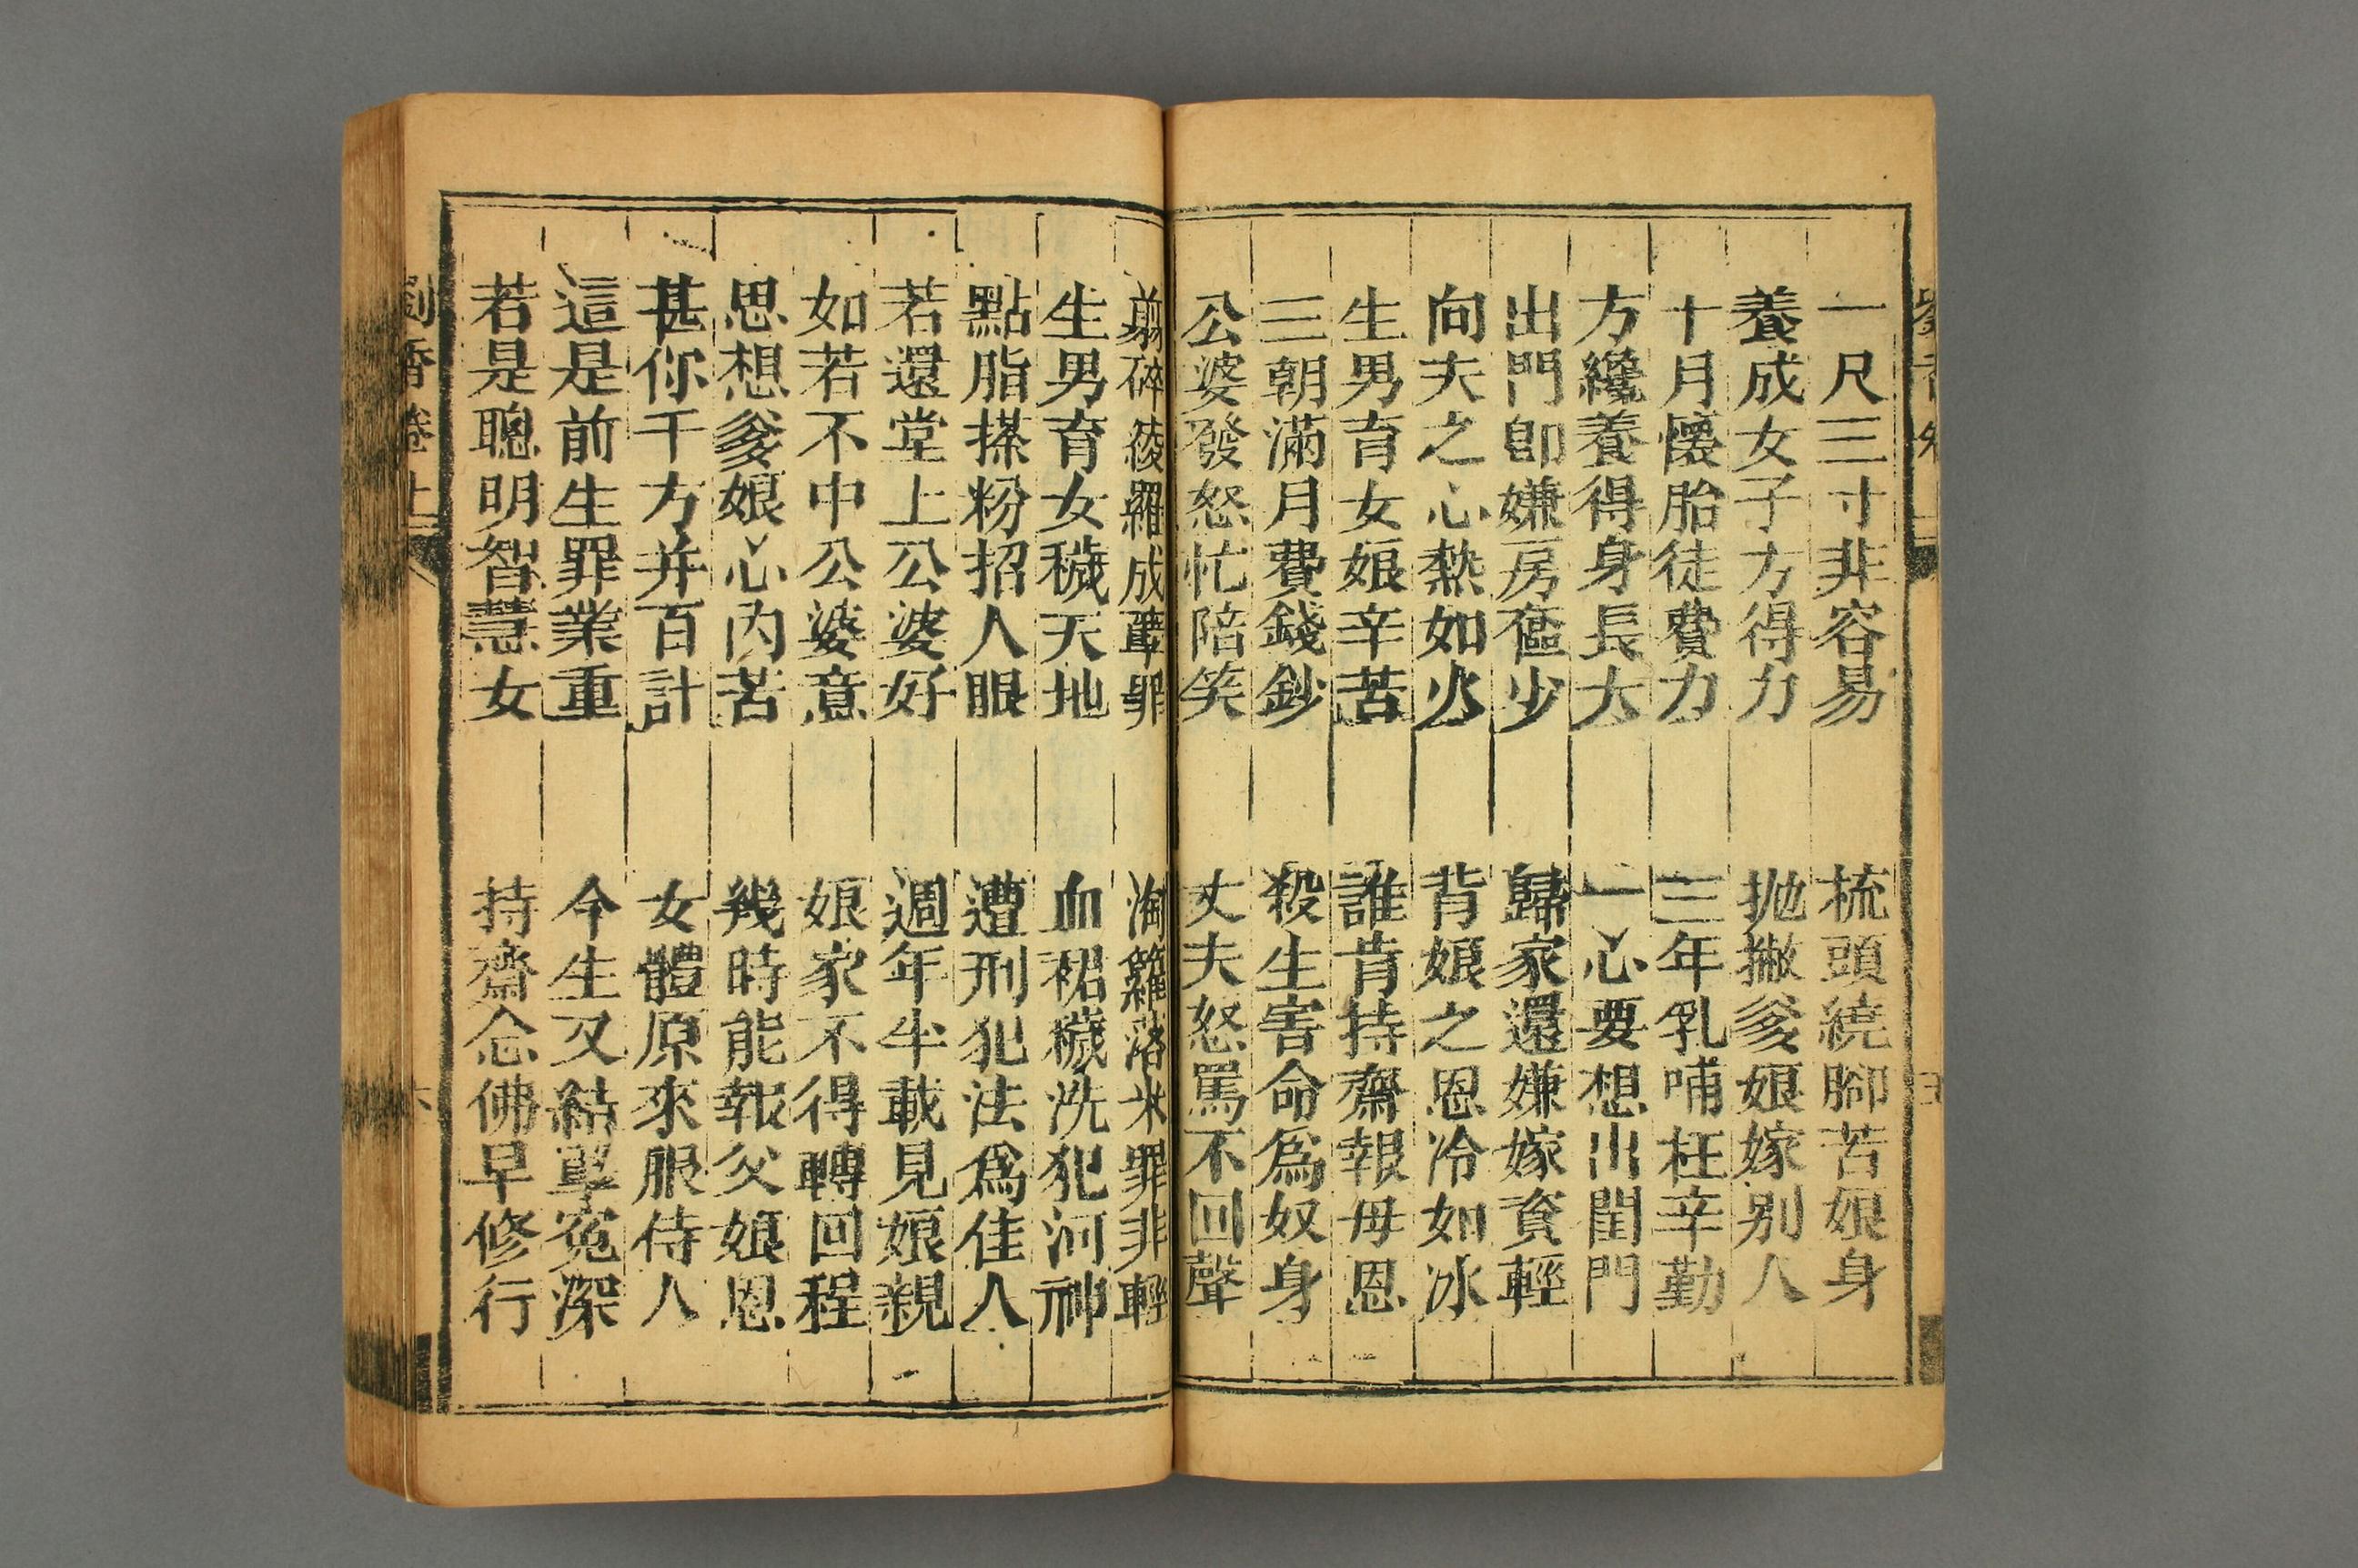 一尺三寸非容易　梳頭繞腳苦娘身
養成女子方得力　拋撇爹娘嫁別人
十月懷胎徒費力　三年乳哺枉辛勤
方纔養得身長大　一心要想出閨門
出門卽嫌房奩少　歸家還嫌嫁資輕
向夫之心熱如火　背娘之恩冷如冰
生男育女娘辛苦　誰肯持齋報母恩
三朝滿月費錢鈔　殺生害命爲奴身
公婆發怒忙陪笑　丈夫怒罵不回聲
剪碎綾羅成罪　淘籮落米罪非輕
生男育女穢天地　血裙穢洗犯河神
點脂搽粉招人眼　遭刑犯法爲佳人
若還堂上公婆好　週年半載見娘親
如若不中公婆意　娘家不得轉回程
思想爹娘心內苦　幾時能報父娘恩
甚你千方并百計　女體原來服侍人
這是前生罪業重　今生又結孽冤深
若是聰明智慧女　持齋念佛早修行
劉香卷上　六